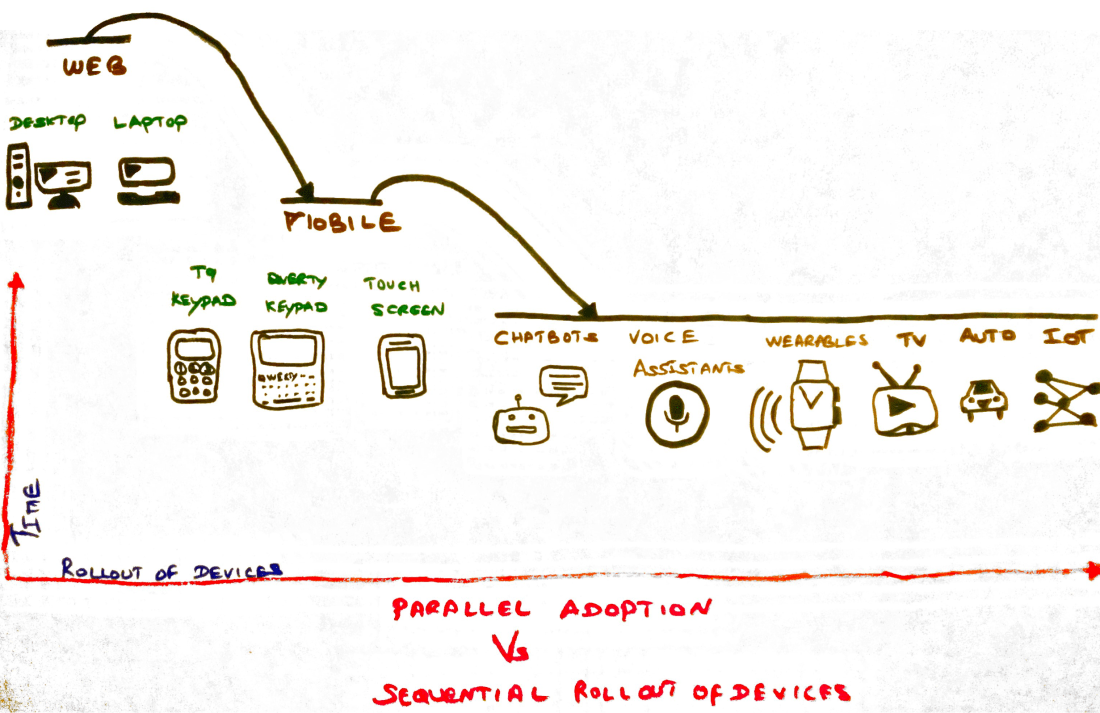 WEB
DESKTOP LAPTOP
MOBILE
T9 KEYPAD
QWERTY KEYPAD
TOUCH SCREEN
QWERTY
CHATBOTS
VOICE ASSISTANTS
WEARABLES
TV
AUTO
IOT
TIME
ROLLOUT OF DEVICES
PARALLEL ADOPTION
Vs
SEQUENTIAL ROLLOUT OF DEVICES